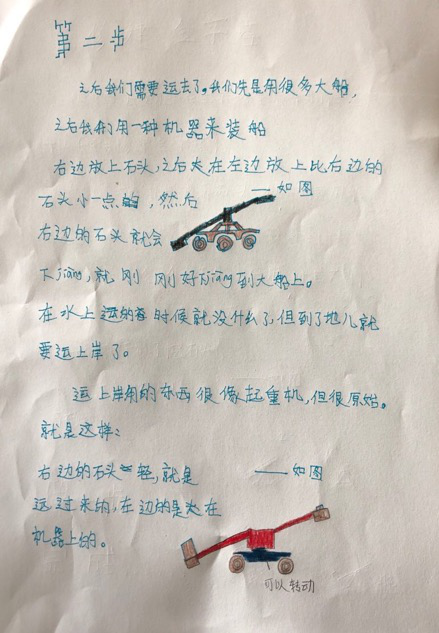 第二步
之后我们需要运去了。我们先是用很多大船,
之后我们用一种机器来装船
右边放上石头,之后夹在左边放上比右边的
石头小一点的,然后 ——如图
右边的石头就会
下jiàng,就刚刚好下jiàng到大船上。
在水上运的时候就没什么了,但到了地儿就
要运上岸了。
运上岸用的东西很像起重机,但很原始。
就是这样:
右边的石头轻,就是 ——如图
运过来的,左边的是夹在
机器上的。
可以转动